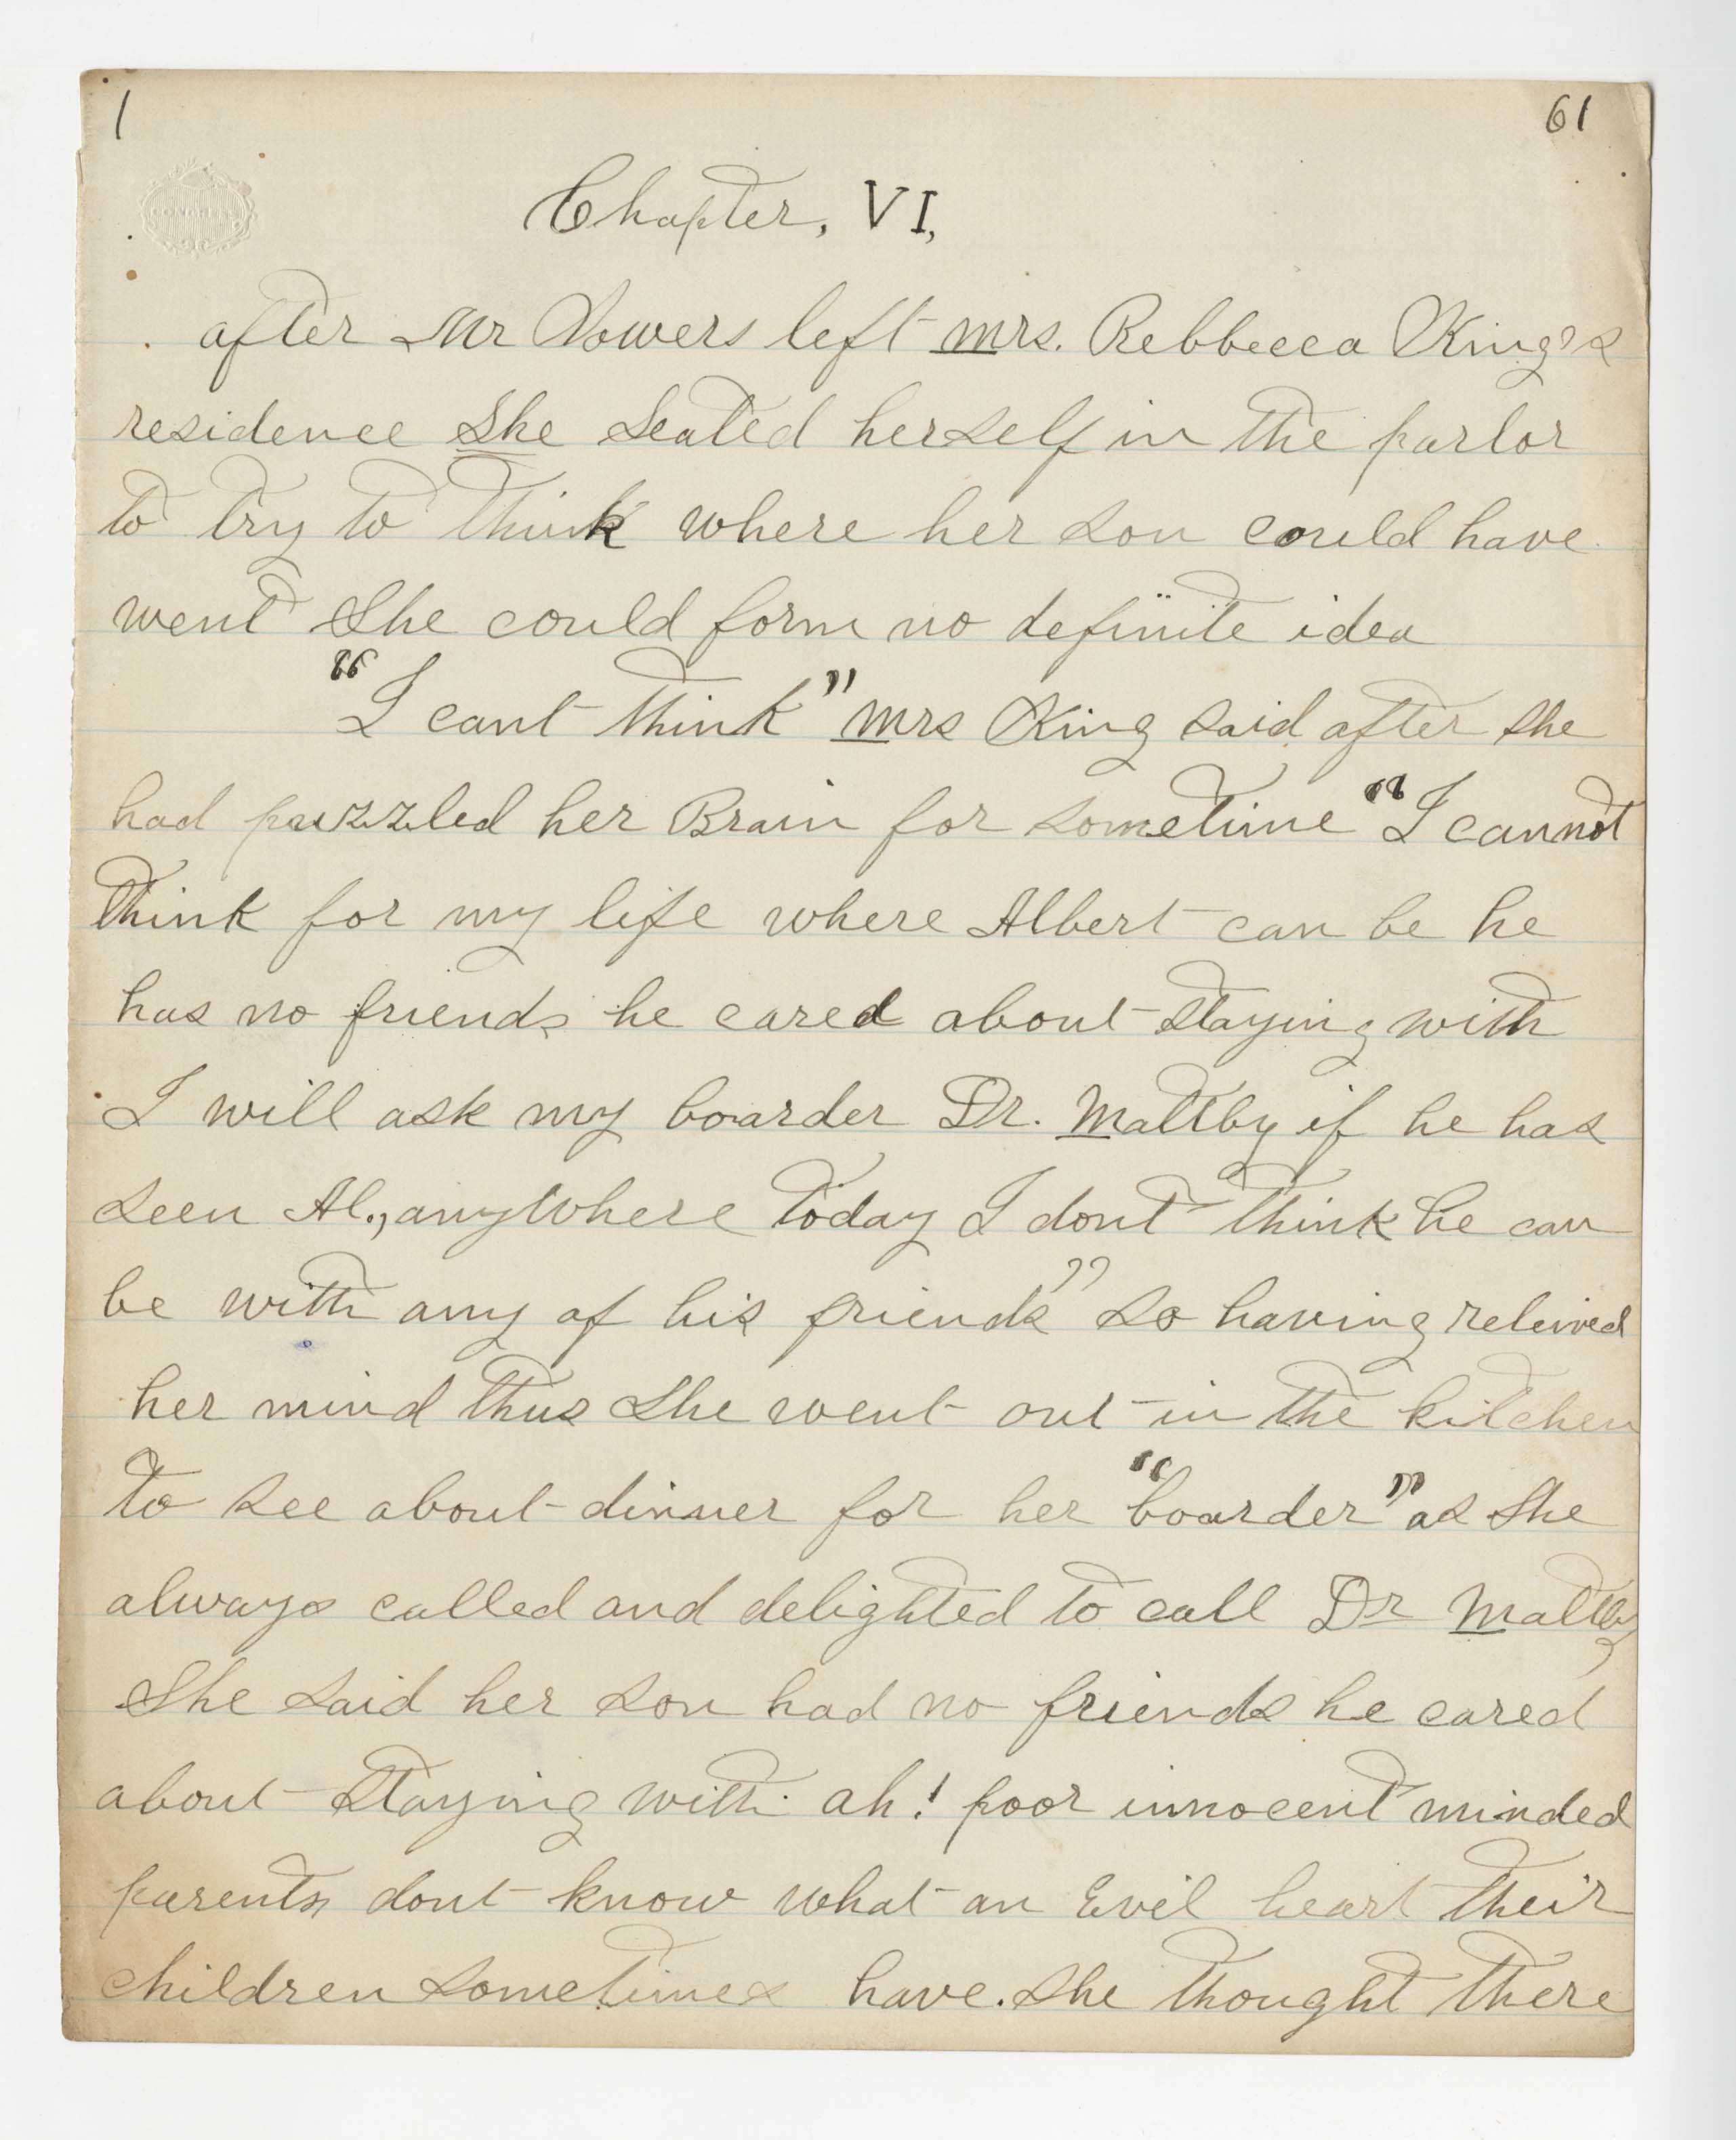 1
61
CONGRESS
Chapter, VI,
after Mr Vowers left mrs. Rebbecca King's
residence she seated herself in the parlor
to try to think where her son could have
went She could form no definite idea
"I cant think" mrs King said after she
had puzzled her Brain for sometime "I cannot
think for my life where Albert can be he
has no friends he cared about staying with
I will ask my boarder Dr. Maltby if he has
seen Al., anywhere today I dont think he can
be with any of his friends" so having releived
her mind thus she went out in the kitchen
to see about dinner for her "boarder" as she
always called and delighted to call Dr Maltby
She said her son had no friends he cared
about staying with. ah! poor innocent minded
parents dont know what an Evil heart their
children sometimes have. she thought there